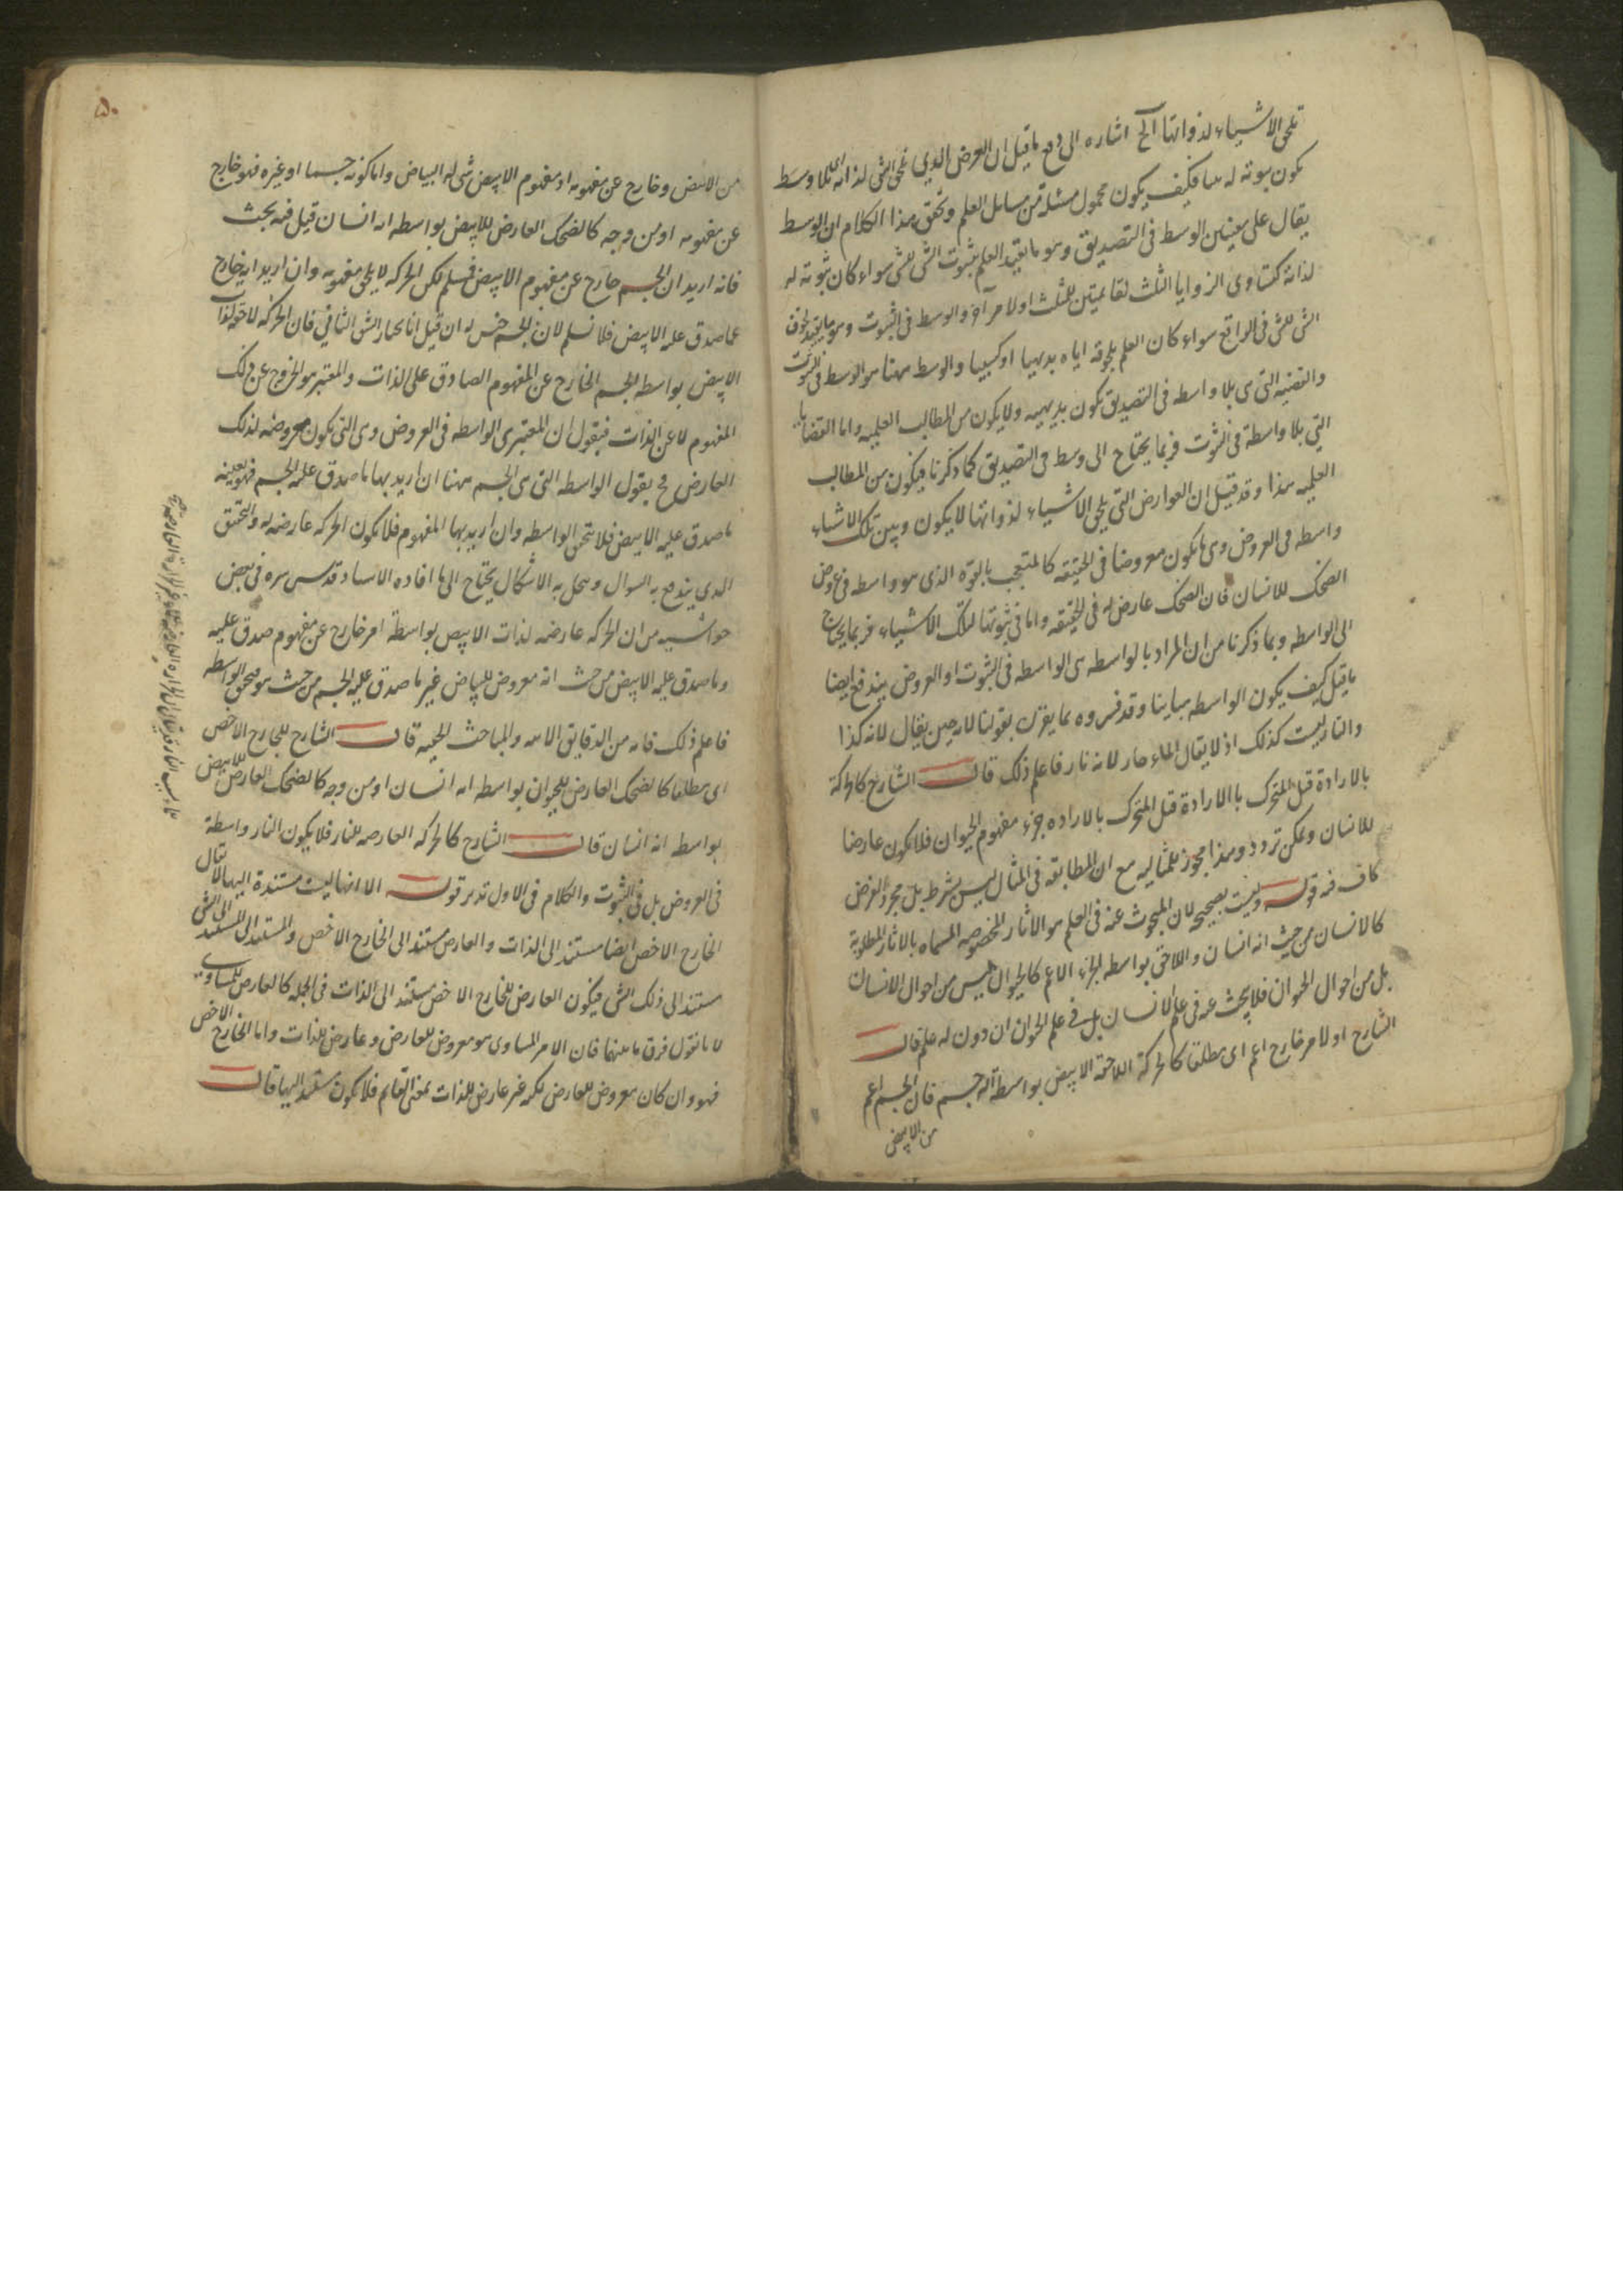 تلحق الاشياء لذواتها الخ اشاره الى دفع ما قيل ان العرض الذي يلحق الشى لذاته اى بلا وسط
يكون ثبوته له بينا فكيف يكون محمول مسئلة من مسايل العلم وتحقق هذا الكلام ان الوسط
يقال على معنيين الوسط فى التصديق وهو ما يفيد العلم بثبوت الشى للشى سواء كان ثبوته له
لذاته كتساوى الزوايا الثلث لقائمتين للمثلث او لامر آخر والوسط فى الثبوت وهو ما يفيد لحوق
الشى للشى فى الواقع سواء كان العلم بلحوقه اياه بديهيا او كسبيا والوسط ههنا هو الوسط فى الثبوت
والقضيه التى هى بلا واسطه فى التصديق تكون بديهيه ولا يكون من المطالب العلميه واما القضايا
التي بلا واسطة فى الثبوت فربما يحتاج الى وسط فى التصديق كما ذكرنا فيكون من المطالب
العلميه هذا وقد قيل ان العوارض التي يلحق الاشياء لذواتها لا يكون وبين تلك الاشياء
واسطه فى العروض وهى ما يكون معروضا فى الحقيقه كالمتعجب بالقوه الذى هو واسطه فى عروض
الضحك للانسان فان الضحك عارض له فى الحقيقه واما فى ثبوتها لتلك الاشياء فربما يحتاج
الى الواسطه وبما ذكرنا من ان المراد بالواسطه هى الواسطه فى الثبوت او العروض يندفع ايضا
ما قيل كيف يكون الواسطه مباينا وقد فسروه بما يقترن بقولنا لانه حين يقال لانه كذا
والنار ليست كذلك اذ لا يقال الماء حار لانه نار فاعلم ذلك قال الشارح كالحركة
بالارادة قيل المتحرك بالارادة قيل المتحرك بالاراده جزء مفهوم الحيوان فلا يكون عارضا
للانسان ويمكن تردد وهذا مجوز للمثاليه مع ان المطابقه فى المثال ليس بشرط بل مجرد الفرض
كاف فيه قوله وليست بصحيحه لان المبحوث عنه فى العلم هو الاثار المخصوصه المسماه بالاثار المطلوبة
كالانسان من حيث انه انسان واللاحق بواسطه الجزء الاعم كالحيوان ليس من احوال الانسان
بل من احوال الحيوان فلا يبحث عنه فى علم الانسان بل في علم الحيوان ان دون له علم قال
الشارح او لامر خارج اعم اى مطلقا كالحركة اللاحقة الابيض بواسطة انه جسم فان الجسم اعم
من الابيض
٥٠
من الابيض وخارج عن مفهومه اذ مفهوم الابيض شى له البياض واما كونه جسما او غيره فهو خارج
عن مفهومه او من وجه كالضحك العارض للابيض بواسطه انه انسان قيل فيه بحث
فانه اريد ان الجسم خارج عن مفهوم الابيض فمسلم لكن الحركه لا يلحق مفهومه وان اريد انه خارج
عما صدق عليه الابيض فلا نسلم لان الجسم جنس له ان قيل انا نختار الشق الثاني فان الحركه لاحقة لذات
الابيض بواسطه الجسم الخارج عن المفهوم الصادق على الذات والمعتبر هو الخروج عن ذلك
المفهوم لا عن الذات فيقول ان المعتبر هى الواسطه فى العروض وهى التى يكون معروضه لذلك
العارض فح نقول الواسطه التى هى الجسم ههنا ان اريد بها ما صدق عليه الجسم فهو بعينه
ما صدق عليه الابيض فلا يتحقق الواسطه وان اريد بها المفهوم فلا يكون الحركه عارضه له والتحقيق
الذى يندفع به السوال وينحل به الاشكال يحتاج الى ما افاده الاستاد قدس سره فى بعض
حواشيه من ان الحركه عارضه لذات الابيض بواسطة امر خارج عن مفهوم صدق عليه
وما صدق عليه الابيض من حيث انه معروض للبياض غير ما صدق عليه الجسم من حيث هو فتحقق الواسطه
فاعلم ذلك فانه من الدقايق والمباحث قال الشارح للخارج الاخص
اى مطلقا كالضحك العارض للحيوان بواسطه انه انسان او من وجه كالضحك العارض للابيض
بواسطه انه انسان قال الشارح كالحركه العارضه للنار فلا يكون النار واسطة
فى العروض بل فى الثبوت والكلام فى الاول تدبر قوله الا انها ليست مستندة اليها لا يقال
الخارج الاخص ايضا مستند الى الذات والعارض مستند الى الخارج الاخص والمستند الى المستند الى الشى
مستند الى ذلك الشى فيكون العارض للخارج الاخص مستند الى الذات فى الجمله كالعارض للمساوى
لانا نقول فرق ما بينهما فان الامر المساوى هو معروض للعارض وعارض للذات واما الخارج الاخص
فهو وان كان معروض للعارض لكنه غير عارض للذات بمعنى القايم فلا يكون مستند اليها قال